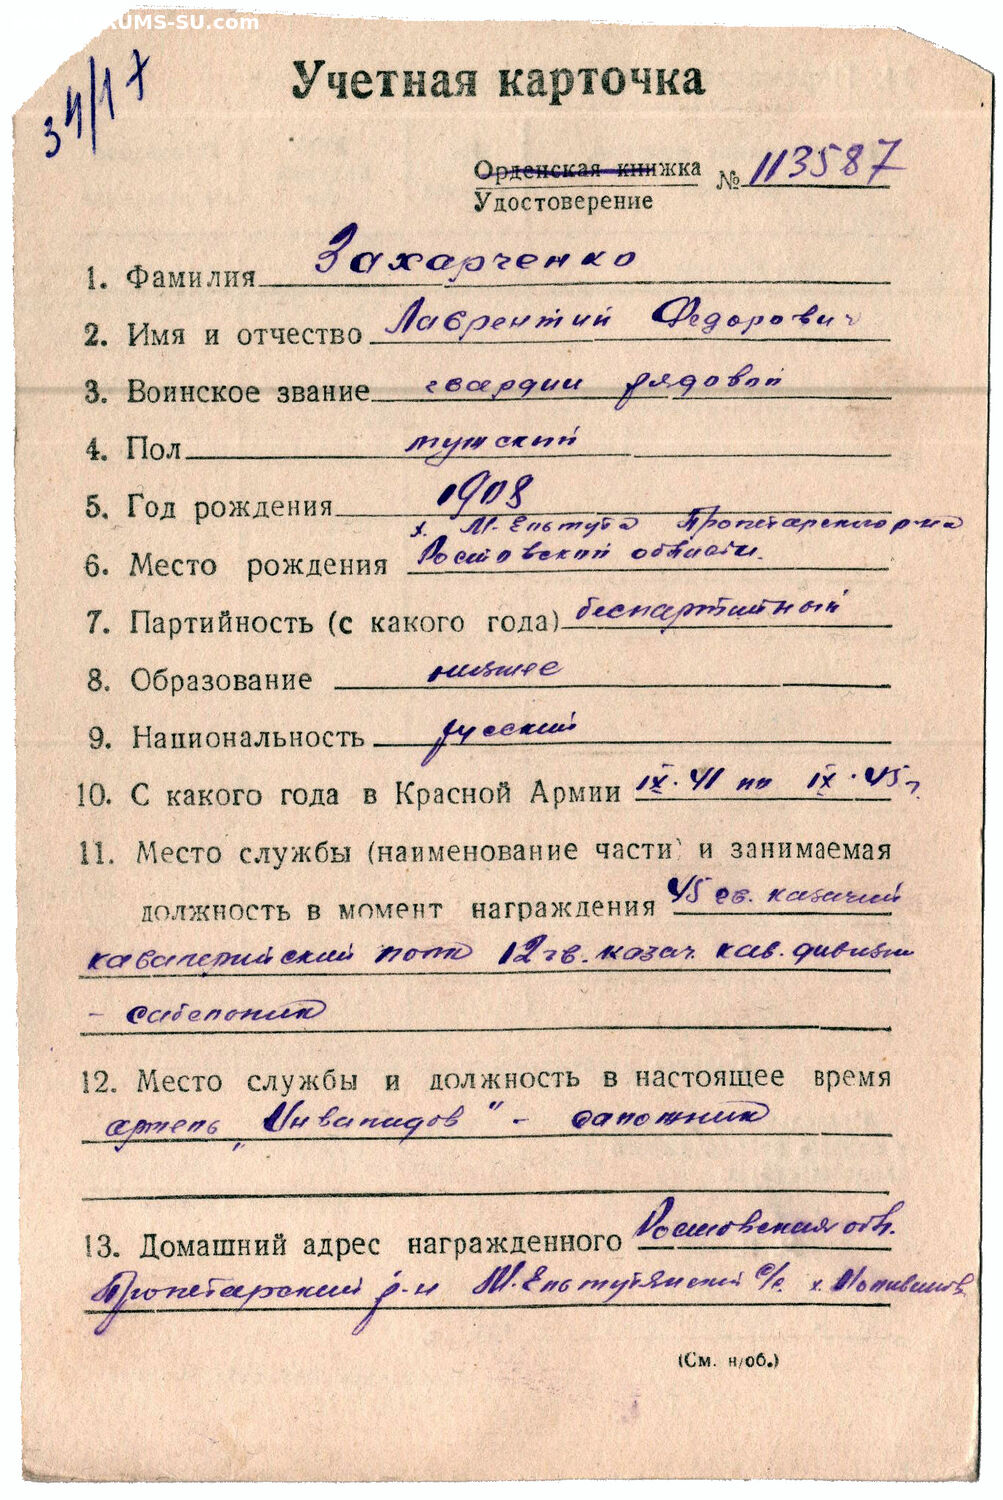 RUMS-SU.com
34/17
Учетная карточка
Орденская книжка № 113587
Удостоверение
1. Фамилия Захарченко
2. Имя и отчество Лаврентий Федорович
3. Воинское звание гвардии рядовой
4. Пол мужской
5. Год рождения 1908
х. М. Ельмута Пролетарского р-на
6. Место рождения Ростовской области.
7. Партийность (с какого года) беспартийный
8. Образование низшее
9. Национальность русский
10. С какого года в Красной Армии IX. 41 по IX. 45 г.
11. Место службы (наименование части) и занимаемая
должность в момент награждения 45 гв. казачий
кавалерийский полк 12 гв. казач. кав. дивизии
- сабельник
12. Место службы и должность в настоящее время
артель „Инвалидов" - сапожник
13. Домашний адрес награжденного Ростовская обл.
Пролетарский р-н М. Ельмутянский с/с. х.
(См. н/об.)